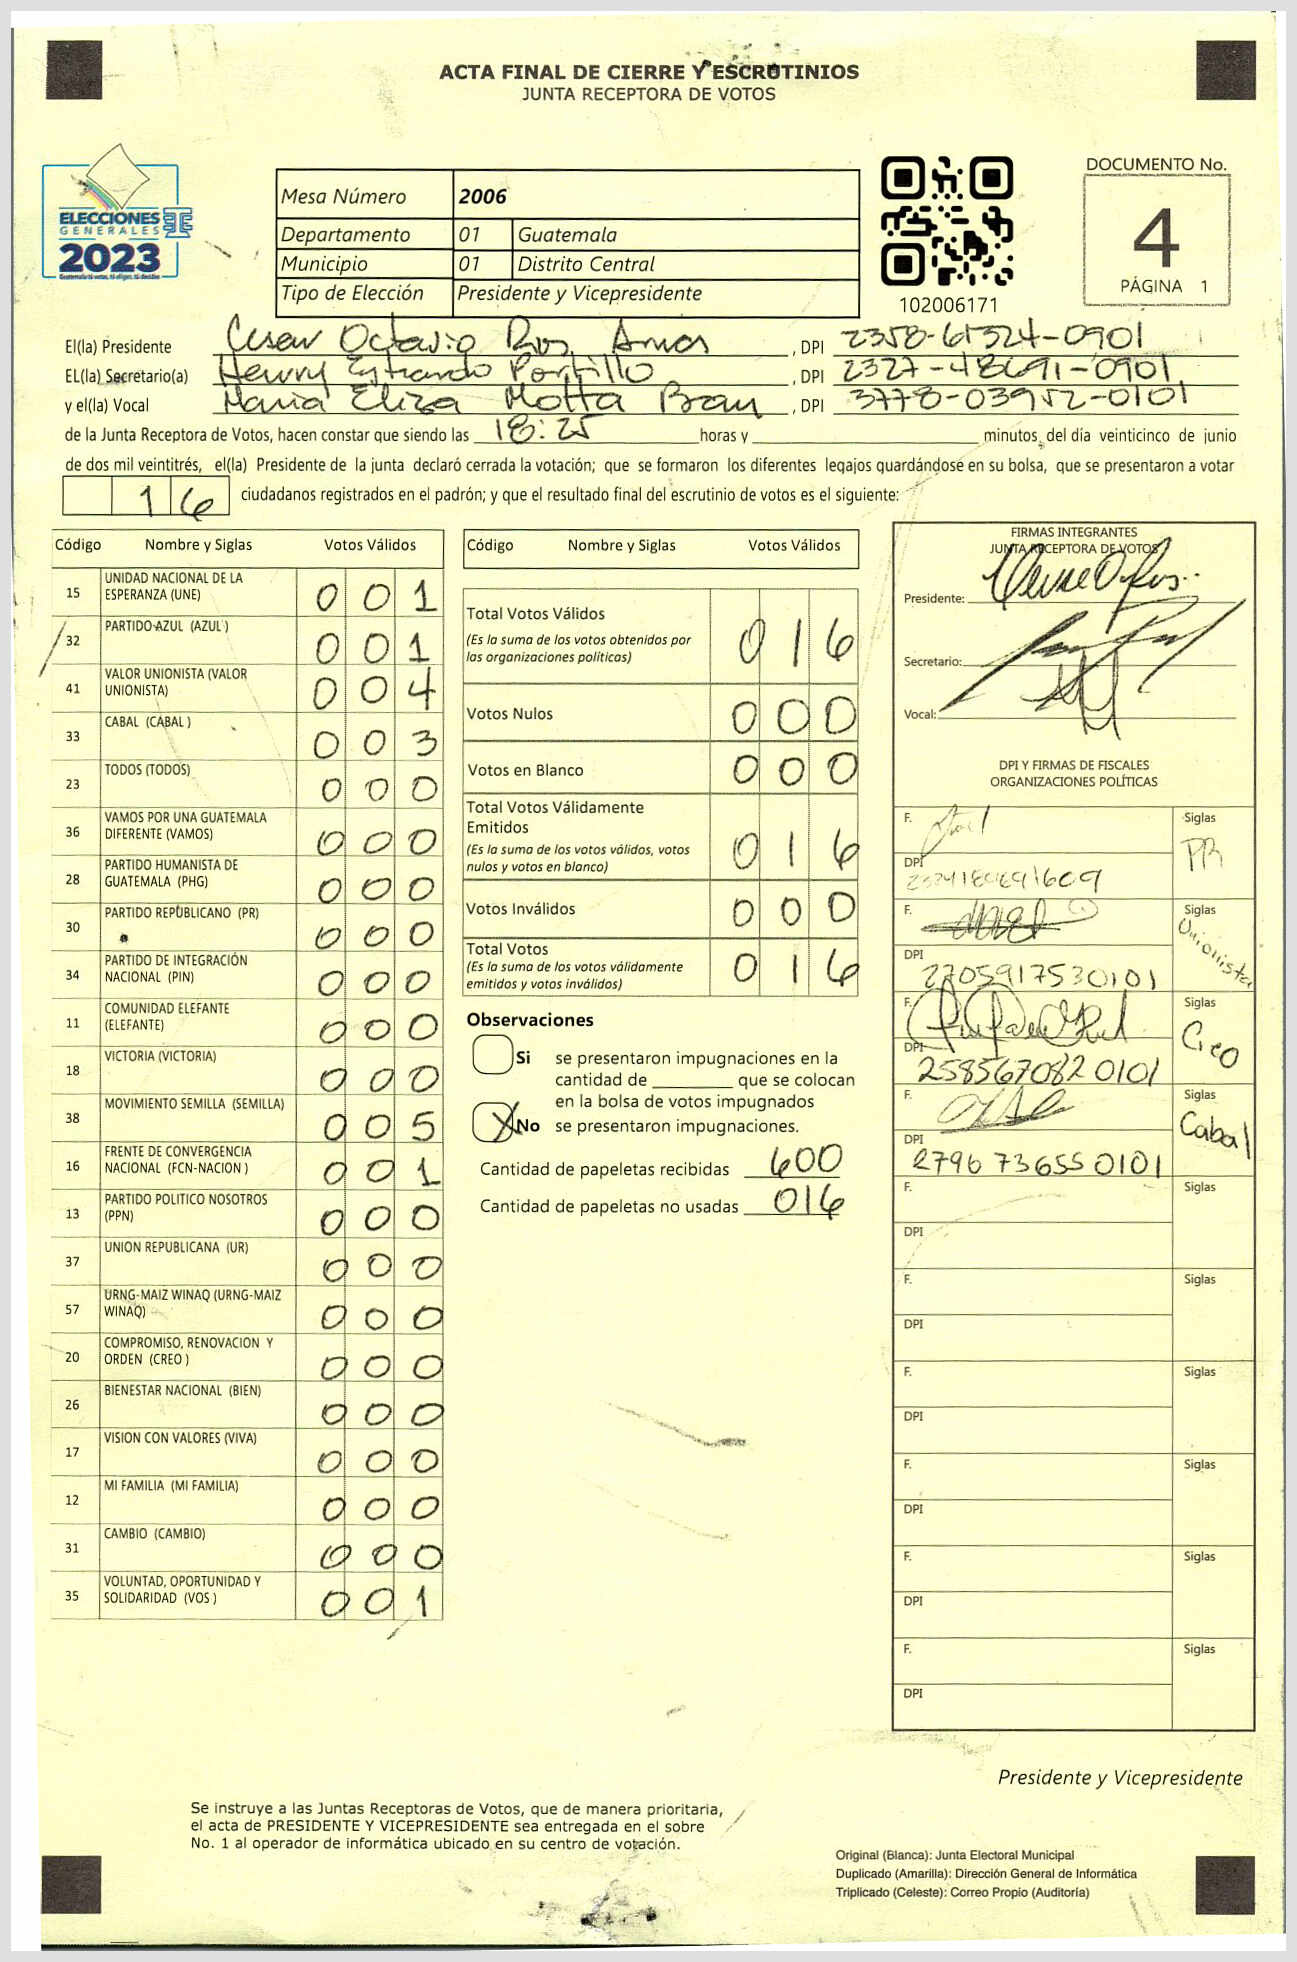 ACTA FINAL DE CIERRE Y ESCRUTINIOS
JUNTA RECEPTORA DE VOTOS
ELECCIONES
GENERALES
2023
Mesa Número 2006
Departamento 01 Guatemala
Municipio 01 Distrito Central
Tipo de Elección Presidente y Vicepresidente
102006171
DOCUMENTO No.
4
PÁGINA 1
El(la) Presidente Cesar Octavio , DPI 2358-61324-0901
EL(la) Secretario(a) Henry Portillo , DPI 2327-48691-0901
y el(la) Vocal Maria Eliza Motta Bran , DPI 3778-03952-0101
de la Junta Receptora de Votos, hacen constar que siendo las 18:25 horas y minutos, del día veinticinco de junio
de dos mil veintitrés, el(la) Presidente de la junta declaró cerrada la votación; que se formaron los diferentes legajos guardándose en su bolsa, que se presentaron a votar
16 ciudadanos registrados en el padrón; y que el resultado final del escrutinio de votos es el siguiente:
Código Nombre y Siglas Votos Válidos
15 UNIDAD NACIONAL DE LA
ESPERANZA (UNE) 001
32 PARTIDO AZUL (AZUL ) 001
41 VALOR UNIONISTA (VALOR
UNIONISTA) 004
33 CABAL (CABAL ) 003
23 TODOS (TODOS) 000
36 VAMOS POR UNA GUATEMALA
DIFERENTE (VAMOS) 000
28 PARTIDO HUMANISTA DE
GUATEMALA (PHG) 000
30 PARTIDO REPUBLICANO (PR) 000
34 PARTIDO DE INTEGRACIÓN
NACIONAL (PIN) 000
11 COMUNIDAD ELEFANTE
(ELEFANTE) 000
18 VICTORIA (VICTORIA) 000
38 MOVIMIENTO SEMILLA (SEMILLA) 005
16 FRENTE DE CONVERGENCIA
NACIONAL (FCN-NACION ) 001
13 PARTIDO POLITICO NOSOTROS
(PPN) 000
37 UNION REPUBLICANA (UR) 000
57 URNG-MAIZ WINAQ (URNG-MAIZ
WINAQ) 000
20 COMPROMISO, RENOVACION Y
ORDEN (CREO ) 000
26 BIENESTAR NACIONAL (BIEN) 000
17 VISION CON VALORES (VIVA) 000
12 MI FAMILIA (MI FAMILIA) 000
31 CAMBIO (CAMBIO) 000
35 VOLUNTAD, OPORTUNIDAD Y
SOLIDARIDAD (VOS ) 001
Código Nombre y Siglas Votos Válidos
Total Votos Válidos 016
(Es la suma de los votos obtenidos por
las organizaciones políticas)
Votos Nulos 000
Votos en Blanco 000
Total Votos Válidamente
Emitidos 016
(Es la suma de los votos válidos, votos
nulos y votos en blanco)
Votos Inválidos 000
Total Votos 016
(Es la suma de los votos válidamente
emitidos y votos inválidos)
Observaciones
Si se presentaron impugnaciones en la
cantidad de ________ que se colocan
en la bolsa de votos impugnados
X No se presentaron impugnaciones.
Cantidad de papeletas recibidas 600
Cantidad de papeletas no usadas 016
FIRMAS INTEGRANTES
JUNTA RECEPTORA DE VOTOS
Presidente:
Secretario:
Vocal:
DPI Y FIRMAS DE FISCALES
ORGANIZACIONES POLÍTICAS
F. Siglas
PR
DPI
F. Siglas
Unionista
DPI
2705917530101
F. Siglas
Creo
DPI
2585670820101
F. Siglas
Cabal
DPI
2796736550101
F. Siglas
DPI
F. Siglas
DPI
F. Siglas
DPI
F. Siglas
DPI
F. Siglas
DPI
F. Siglas
DPI
Presidente y Vicepresidente
Se instruye a las Juntas Receptoras de Votos, que de manera prioritaria,
el acta de PRESIDENTE Y VICEPRESIDENTE sea entregada en el sobre
No. 1 al operador de informática ubicado en su centro de votación.
Original (Blanca): Junta Electoral Municipal
Duplicado (Amarilla): Dirección General de Informática
Triplicado (Celeste): Correo Propio (Auditoría)